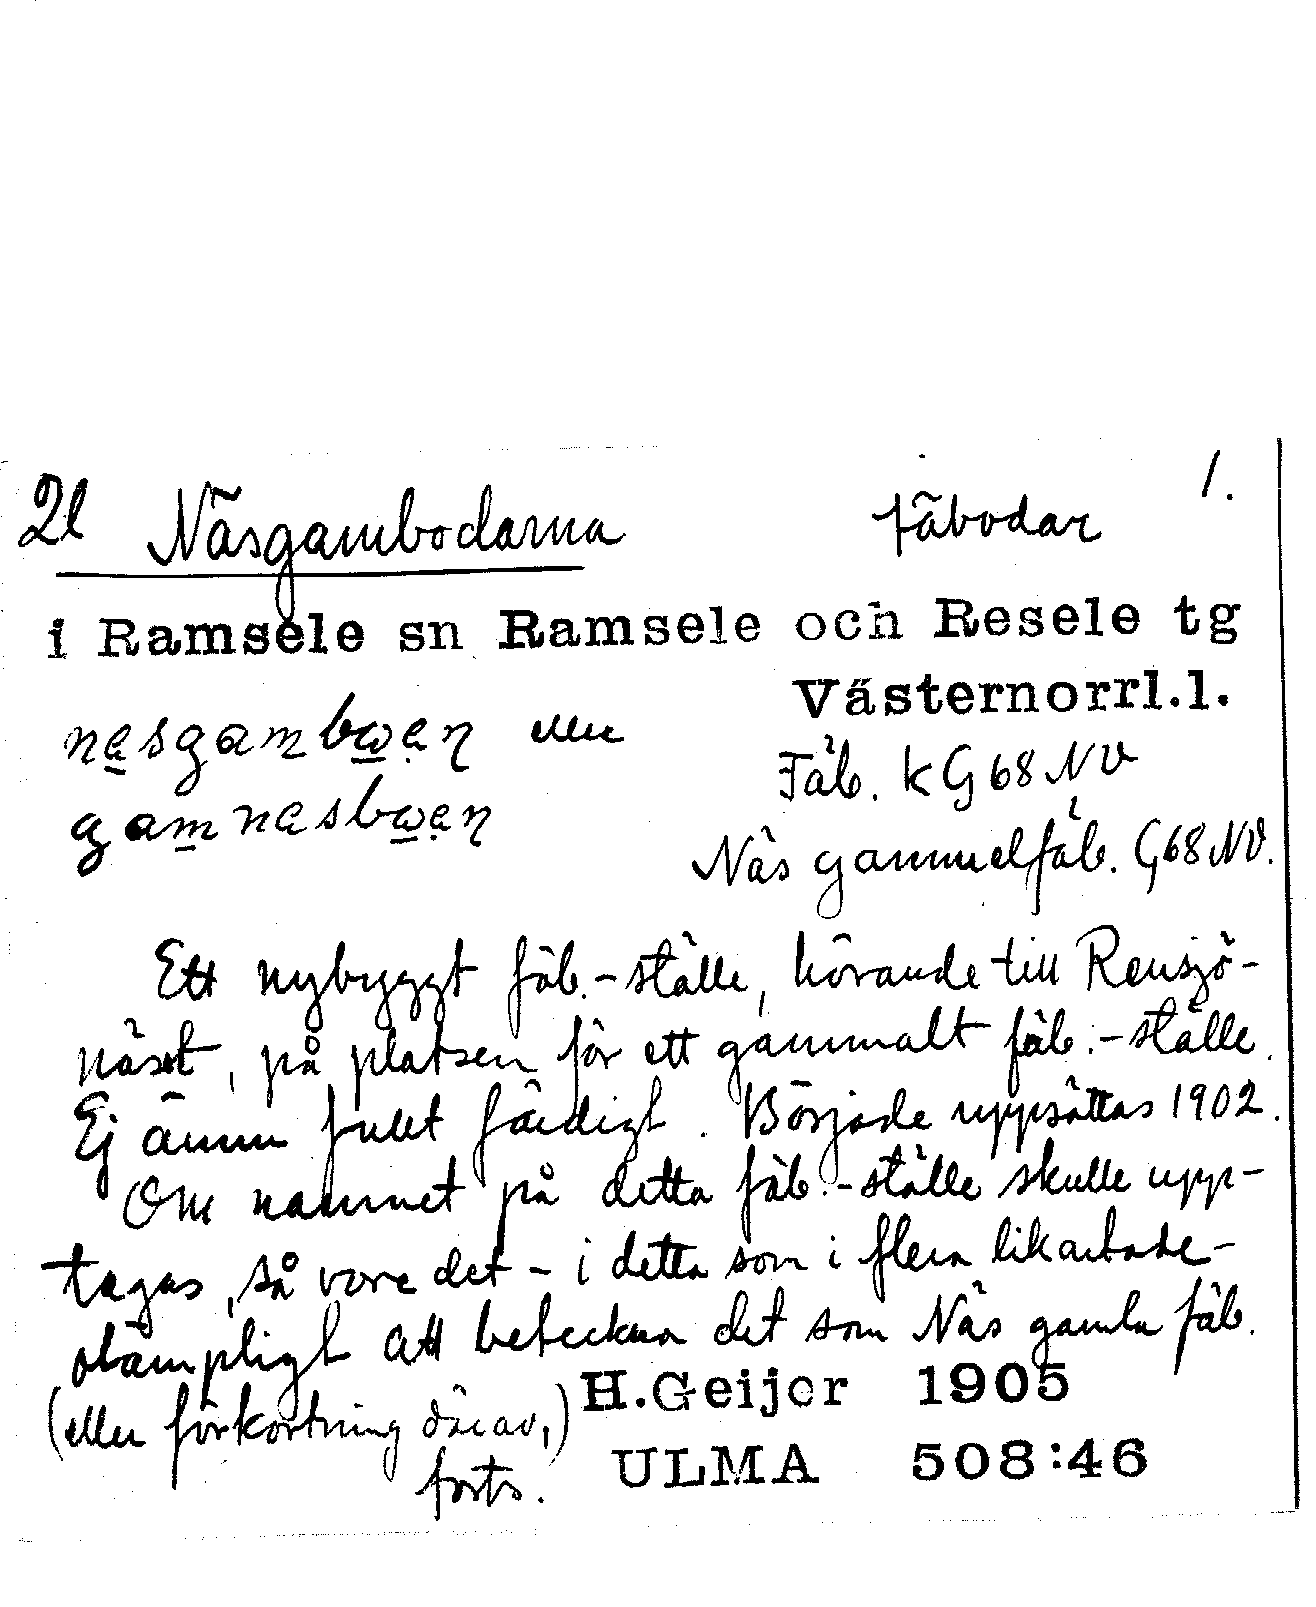 2l Näsgambodarna fäbodar 1.
i Ramsele sn Ramsele och Resele tg
Västernorrl.l.
nesgambwen eller
Fäb. kG68NV
gamnesbwen
Näs gammelfäb. G68NV.
Ett nybyggt fäb.-ställe, hörande till Rensjö-
näset, på platsen för ett gammalt fäb.-ställe.
Ej ännu fullt färdigt. Började uppsättas 1902.
Om namnet på detta fäb.-ställe skulle upp-
tagas, så vore det - i detta som i flera likartade -
olämpligt att beteckna det som Näs gamla fäb.
(eller förkortning därav,) H.Geijer 1905
forts. ULMA 508:46